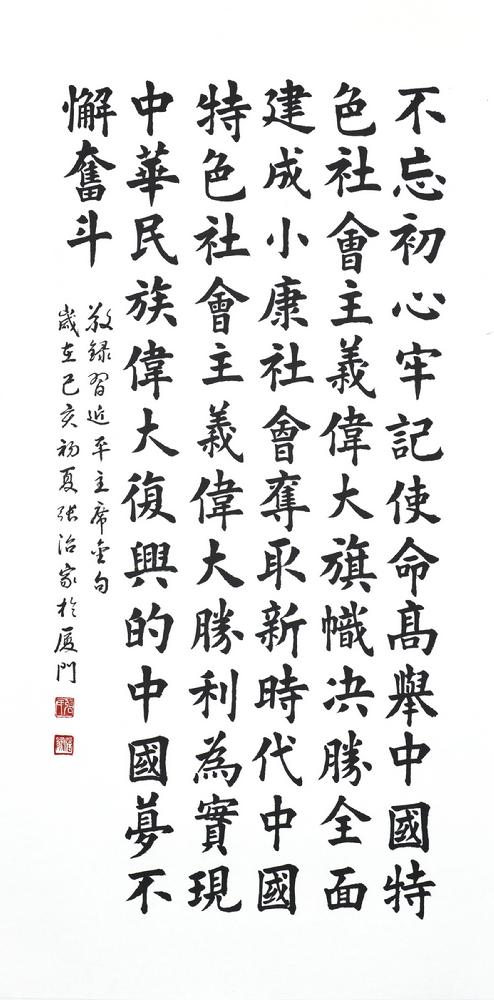 不忘初心牢記使命高舉中國特
色社會主義偉大旗幟决勝全面
建成小康社會奪取新時代中國
特色社會主義偉大勝利為實現
中華民族偉大復興的中國夢不
懈奮斗
敬録習近平主席金句
歲在己亥初夏張治家於厦門